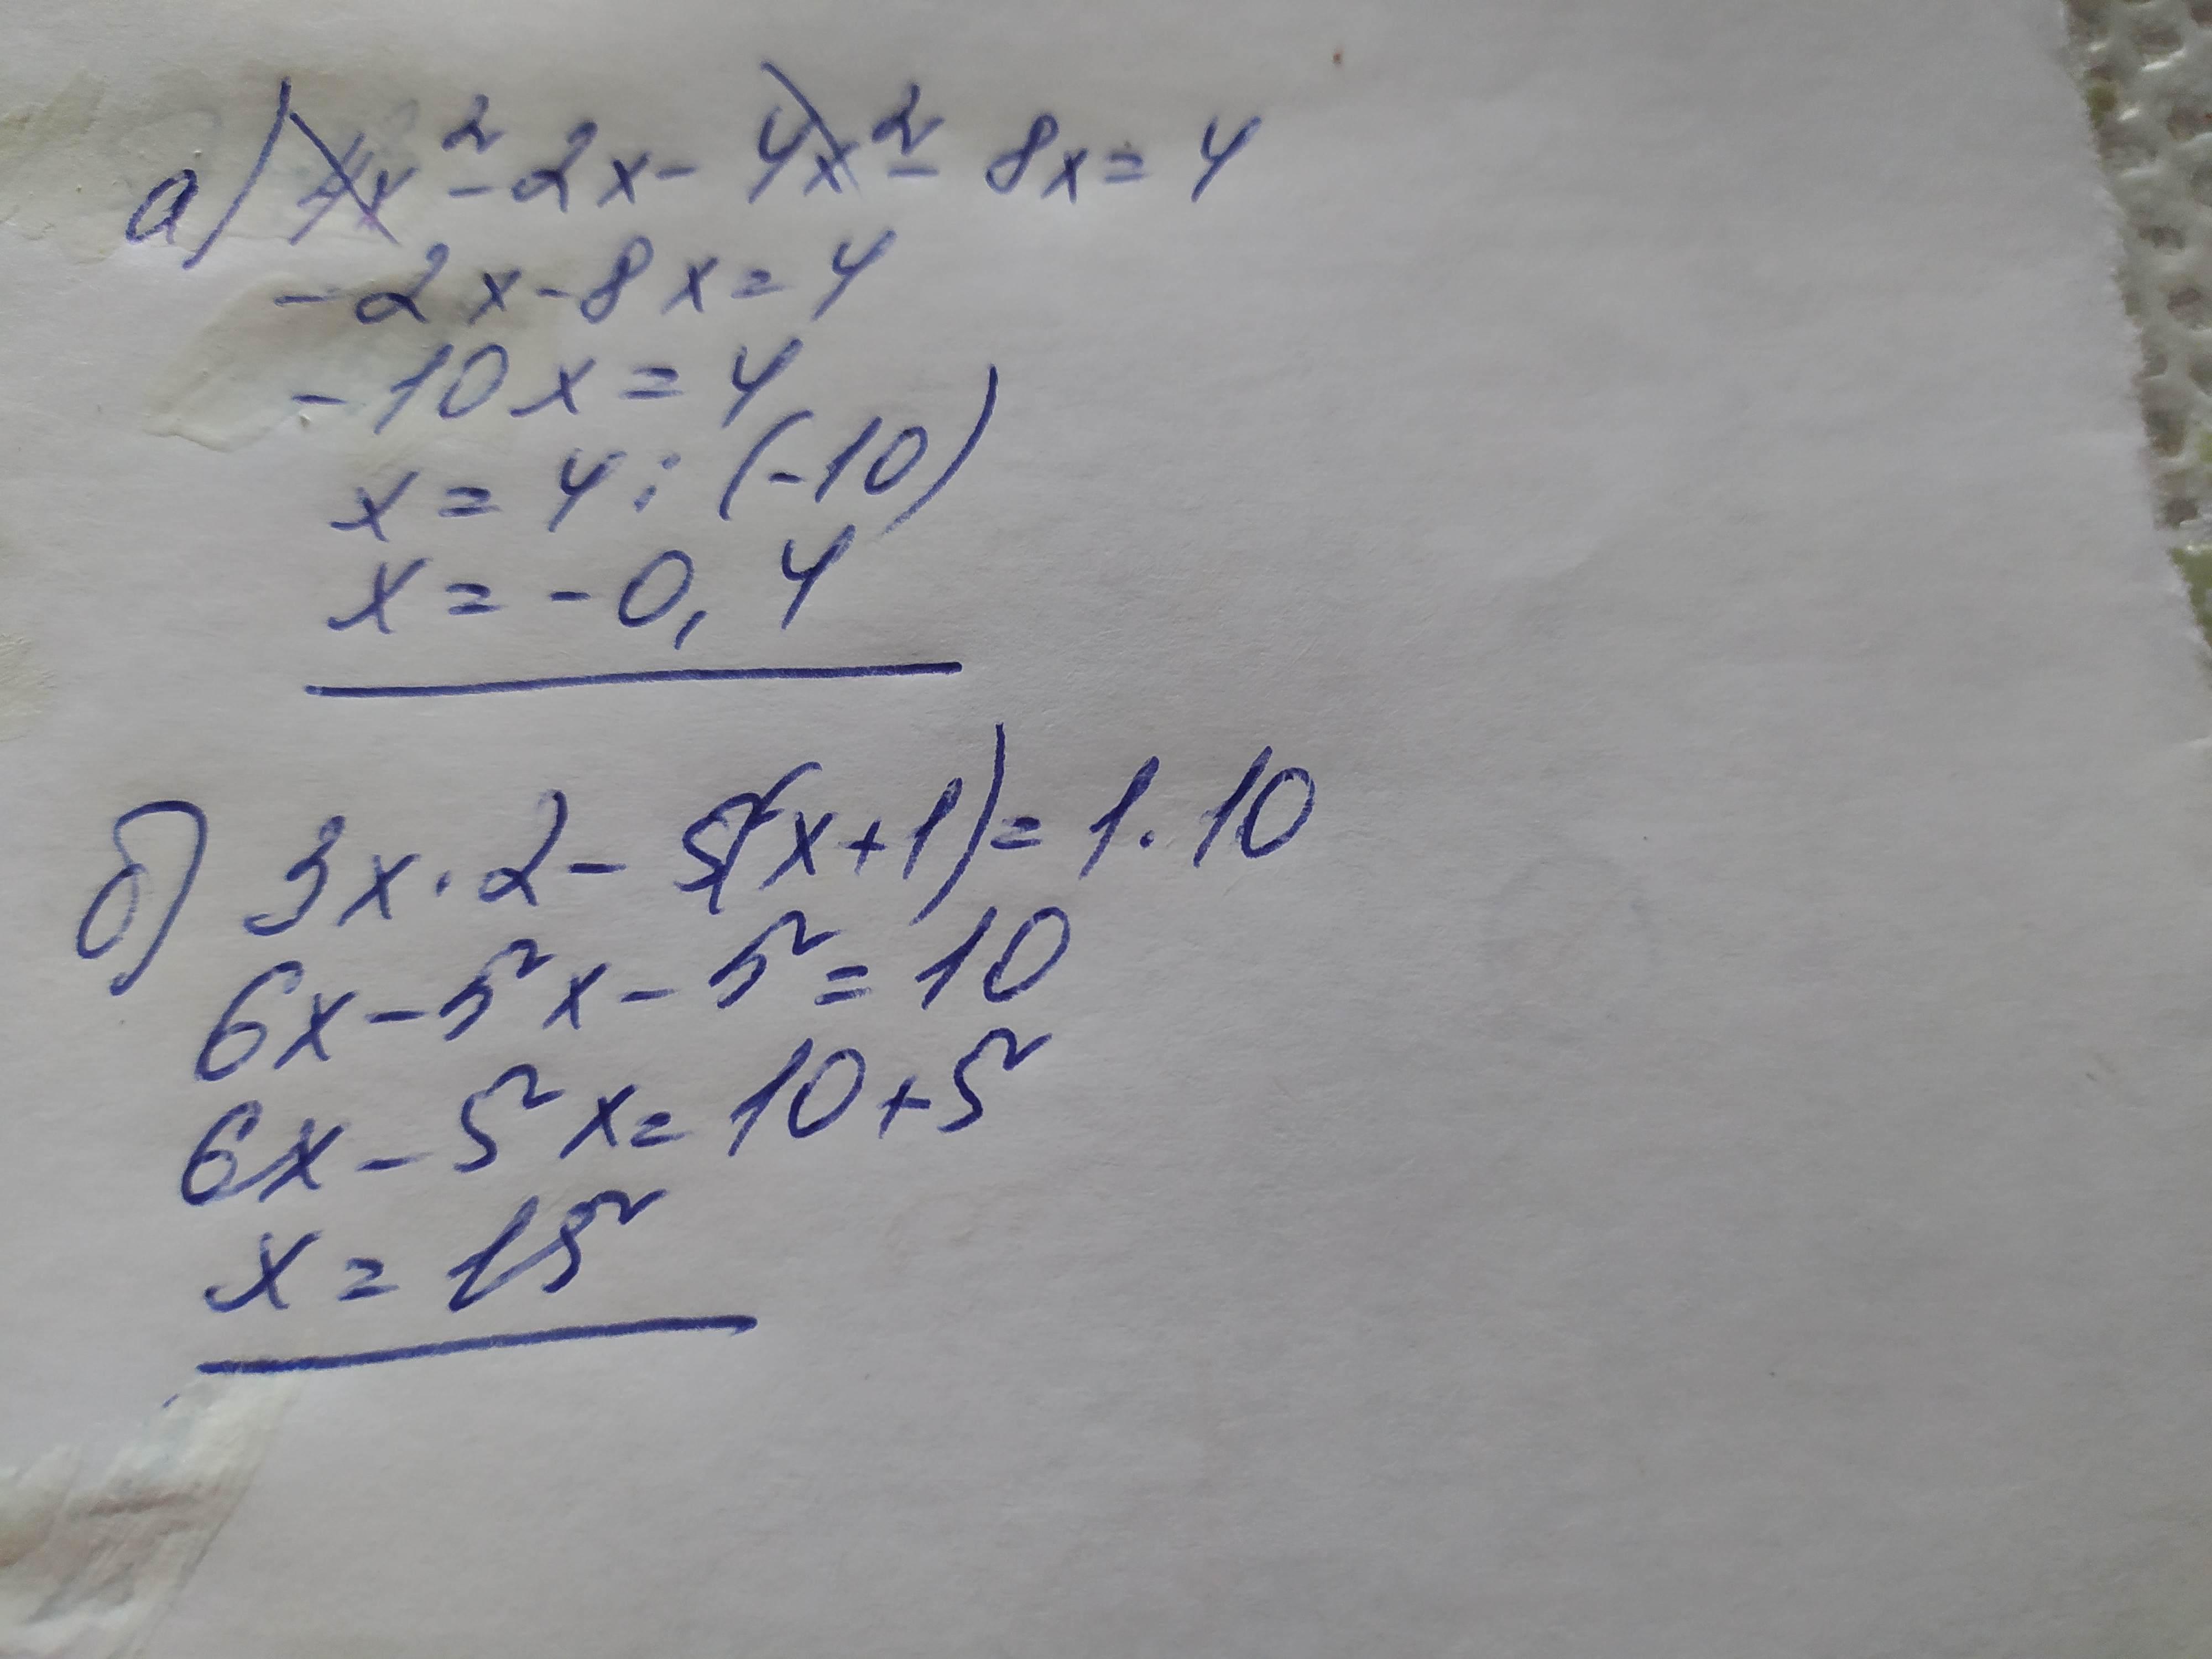 а) 4x² - 2x - 4x² - 8x = 4
-2x - 8x = 4
-10x = 4
x = 4 : (-10)
x = -0,4
б) 3x · 2 - 5(x+1) = 1 · 10
6x - 5x - 5 = 10
6x - 5x = 10 + 5
x = 15